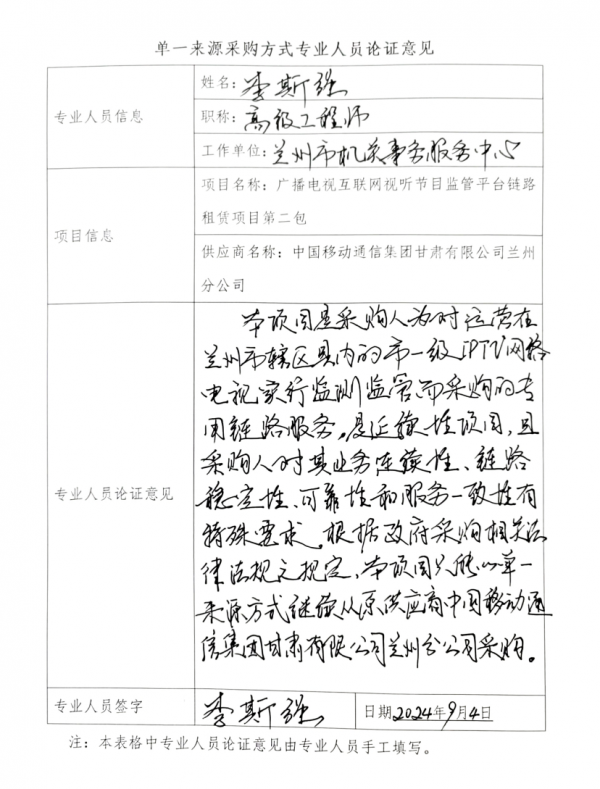 单一来源采购方式专业人员论证意见
专业人员信息
姓名：李斯强
职称：高级工程师
工作单位：兰州市机关事务服务中心
项目信息
项目名称：广播电视互联网视听节目监管平台链路
租赁项目第二包
供应商名称：中国移动通信集团甘肃有限公司兰州
分公司
专业人员论证意见
本项目是采购人为对运营在
兰州市辖区县内的市一级IPTV网络
电视实行监测监管而采购的专
用链路服务，是延续性项目，且
采购人对其业务连续性、链路
稳定性、可靠性和服务一致性有
特殊要求。根据政府采购相关法
律法规之规定，本项目只能以单一
来源方式继续从原供应商中国移动通
信集团甘肃有限公司兰州分公司采购。
专业人员签字
李斯强
日期2024年9月4日
注：本表格中专业人员论证意见由专业人员手工填写。